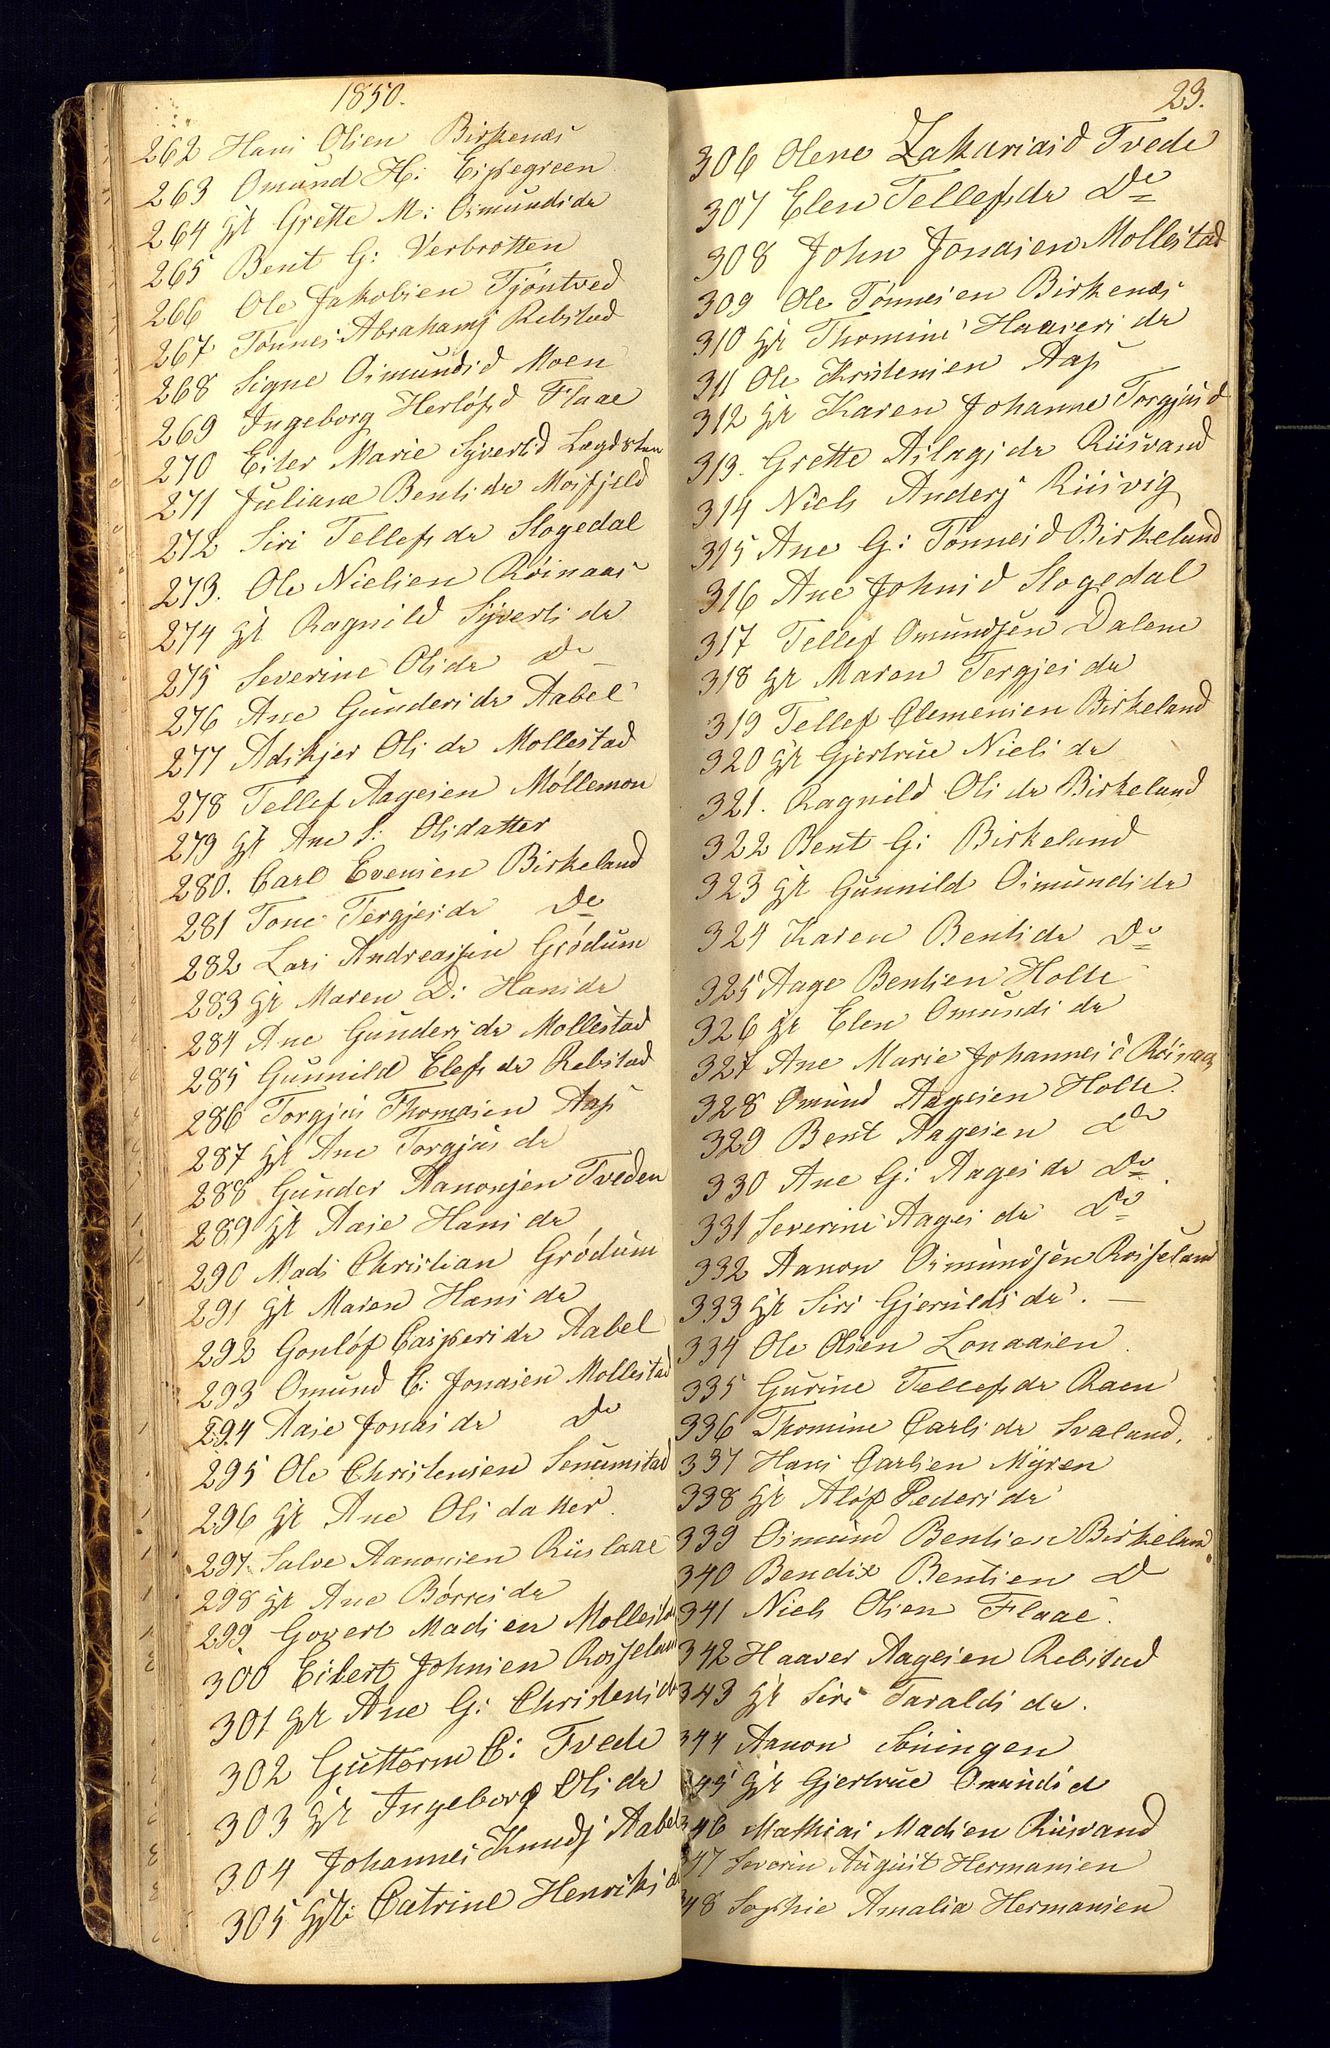 1850.
262 Hans Olsen Birkenæs
263 Omund H: Eppegreen
264 gt Grethe M: Osmundsdr
265 Bent G: Verbrotten
266 Ole Jakobsen Tjöntved
267 Tönnes Abrahams Rebstad
268 Signe Osmundsd Moen
269 Ingeborg Herlöfsd Flaae
270 Eiler Marie Syvertsd
271 Juliane Bentsdr Mosfjeld
272 Siri Tellefsdr Slogedal
273. Ole Nielsen Röinaas
274 gt Ragnild Syvertsdr
275 Severine Olsdr Do
276 Ane Gundersdr Aabel
277 Adskjer Olsdr Mollestad
278 Tellef Aagesen Möllemon
279 gt Ane S: Olsdatter
280. Carl Evensen Birkeland
281 Tone Tergjesdr Do
282 Lars Andreassen Grödum
283 gt Maren D: Hansdr
284 Ane Gundersdr Mollestad
285 Gunnild Elefsdr Rebstad
286 Torgjus Thomasen Aas
287 gt Ane Torgjusdr
288 Gunder Aanonsen Tveden
289 gt Aase Hansdr
290 Mads Christian Grödum
291 gt Maren Hansdr
292 Gonlöf Caspersdr Aabel
293 Omund C: Jonasen Mollestad
294 Aase Jonasdr Do
295 Ole Christensen Senumstad
296 gt Ane Olsdatter.
297. Salve Aanonsen Riislaae
298 gt Ane Börresdr
299 Govert Madsen Mollestad
300 Eilert Johnsen Rosseland
301 gt Ane G: Christensdr
302 Guttorm C: Tvede
303 gt Ingeborg Olsdr
304 Johannes Knuds Aabel
305 gt: Catrine Henriksdr
23.
306 Olene Zakariasd Tvede
307 Elen Tellefsdr Do
308 John Jonasen Mollestad
309 Ole Tönnesen Birkenæs
310 gt Thomine Haaversdr
311 Ole Kristensen Aas
312 gt Karen Johanne Torgjusd
313. Grethe Aslagsdr Riisvand
314 Niels Anders Riisvig
315 Ane G: Tönnesd Birkeland
316 Ane Johnsd Slogedal
317 Tellef Omundsen Dalene
318 gt Maren Tergjesdr
319 Tellef Clemensen Birkeland
320 gt Gjertrue Nielsdr
321. Ragnild Olsdr Birkeland
322 Bent G: Birkeland
323 gt Gunnild Osmundsdr
324 Karen Bentsdr Do
325 Aage Bentsen Holte
326 gt Elen Omundsdr
327 Ane Marie Johannesd Röinaas
328 Omund Aagesen Holte.
329 Bent Aagesen Do
330 Ane G: Aagesdr Do
331 Severine Aagesdr Do
332 Aanon Osmundsen Rosseland
333 gt Siri Gjeruldsdr. —
334 Ole Olsen Lonaasen
335 Gurine Tellefsdr Raen
336 Thomine Carlsdr Svaland.
337 Hans Carlsen Myren
338 gt Alöf Pedersdr
339 Osmund Bentsen Birkeland
340 Bendix Bentsen D
341 Niels Olsen Flaae
342 Haaver Aagesen Rebstad
343 gt Siri Taraldsdr.
344 Aanon
45 gt Gjertrue Omundsd
46 Mathias Madsen Riisvand
47 Severin August Hermansen
48 Sophie Amalia Hermansen